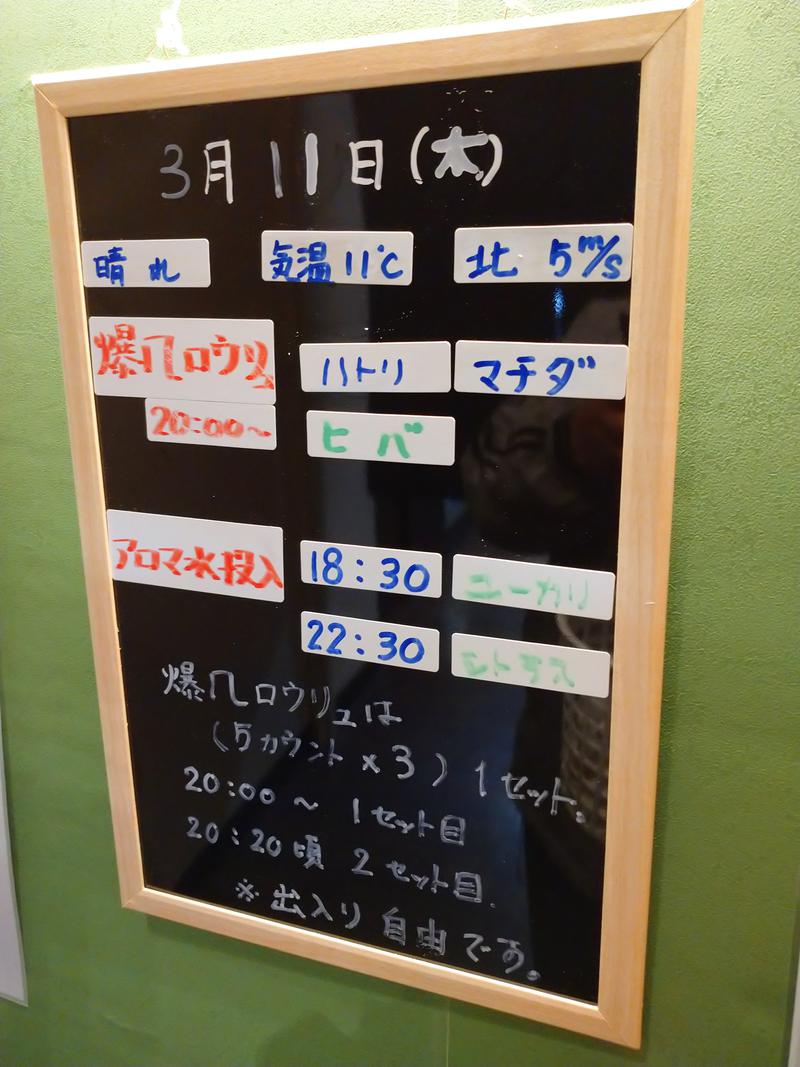 3月11日(木)
晴れ 気温11℃ 北 5m/s
爆風ロウリュ ハトリ マチダ
20:00~ ヒバ
アロマ水投入 18:30 ユーカリ
22:30 シトラス
爆風ロウリュは
(5カウント×3)1セット。
20:00~ 1セット目
20:20頃 2セット目.
※出入り自由です。